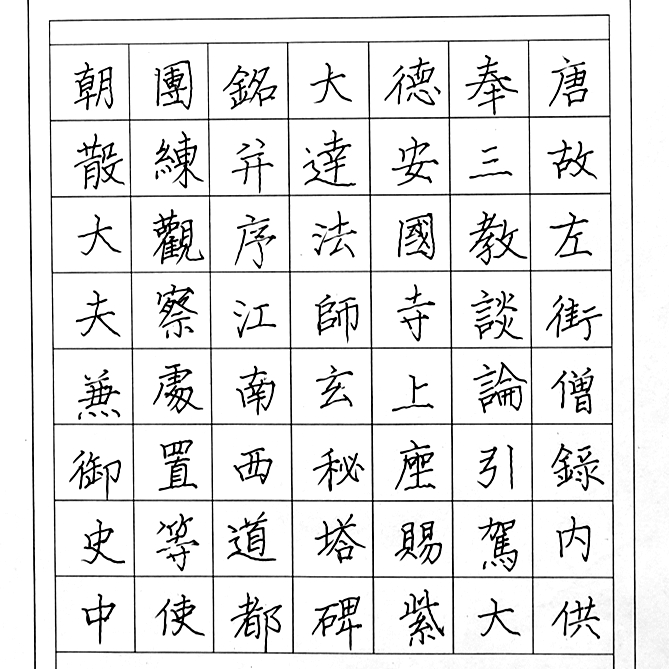 唐故左街僧錄內供
奉三教談論引駕大
德安國寺上座賜紫
大達法師玄秘塔碑
銘并序江南西道都
團練觀察處置等使
朝散大夫兼御史中